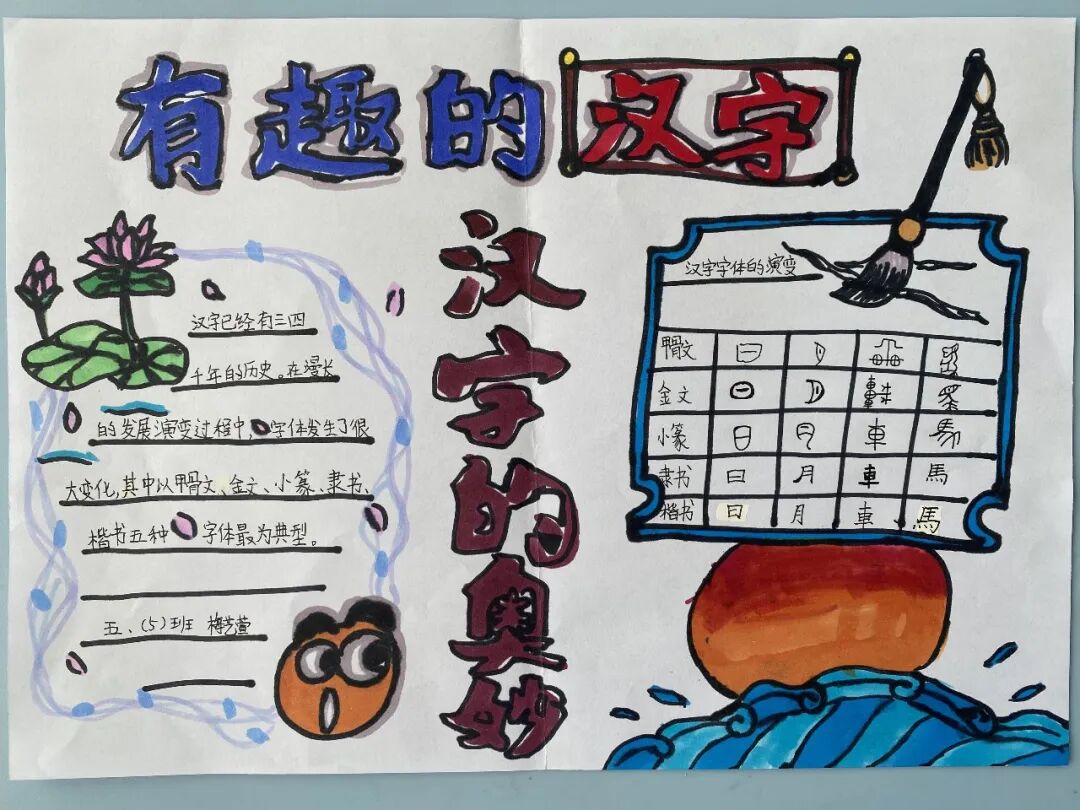 有趣的汉字
汉字的奥妙
汉字已经有三四
千年的历史。在漫长
的发展演变过程中,字体发生了很
大变化,其中以甲骨文、金文、小篆、隶书、
楷书五种字体最为典型。
五、(5)班 梅艺萱
汉字字体的演变
甲骨文
金文
小篆 日 月 車 馬
隶书 日 月 車 馬
楷书 日 月 車 馬